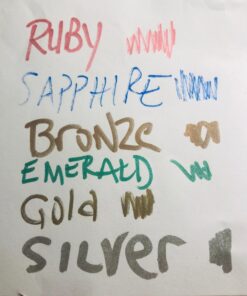 RUBY
SAPPHIRE
BronZe
EMERALD
Gold
SILver